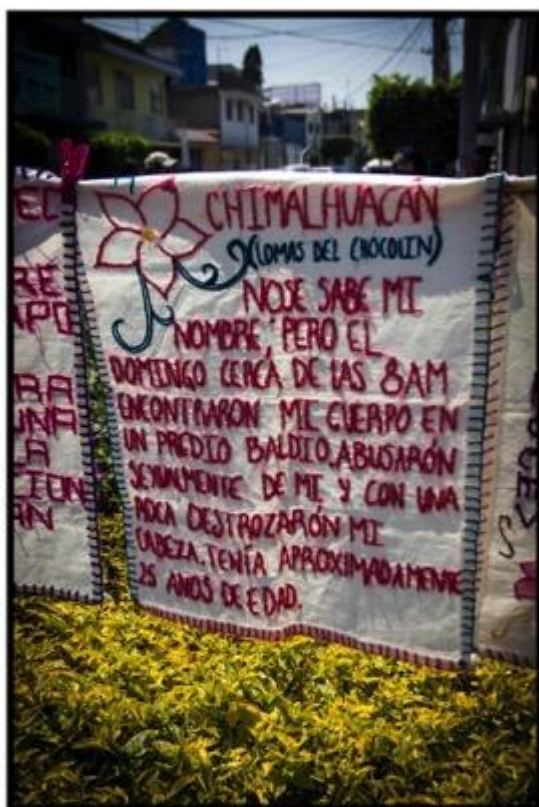 CHIMALHUACÁN
(LOMAS DEL CHOCOLIN)
NOSE SABE MI
NOMBRE, PERO EL
DOMINGO CERCA DE LAS 8AM
ENCONTRARON MI CUERPO EN
UN PREDIO BALDIO. ABUSARÓN
SEXUALMENTE DE MI Y CON UNA
ROCA DESTROZARÓN MI
CABEZA. TENÍA APROXIMADAMENTE
25 AÑOS DE EDAD.
EL
RE
APO
RA
UNA
LA
CION
AN